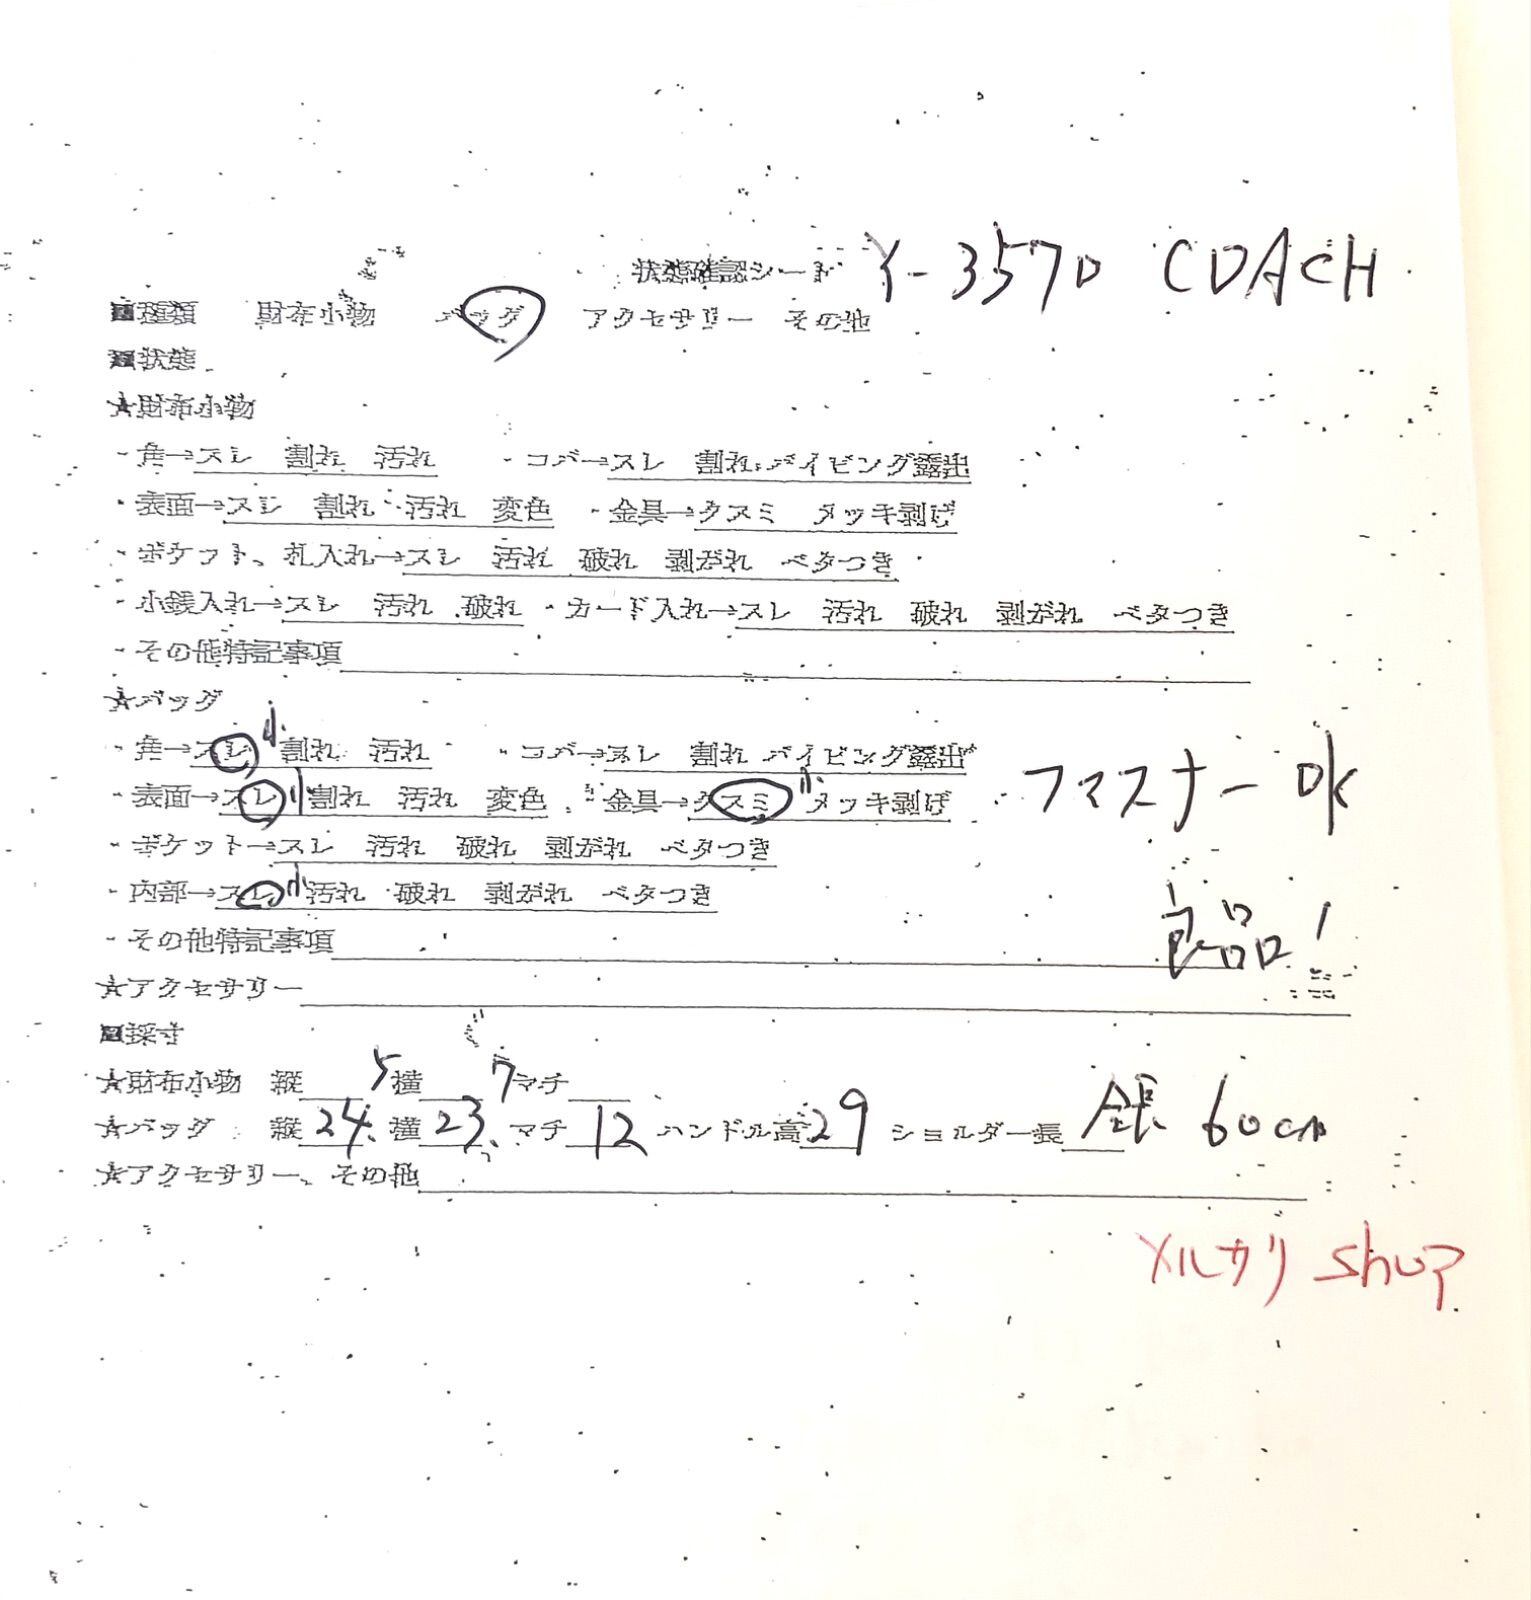 状態確認シート Y-3570 COACH
■種類 財布小物 バッグ アクセサリー その他
■状態
★財布小物
・角→スレ 割れ 汚れ ・コバ→スレ 割れ パイピング露出
・表面→スレ 割れ 汚れ 変色 ・金具→クスミ メッキ剥げ
・ポケット、札入れ→スレ 汚れ 破れ 剥がれ ベタつき
・小銭入れ→スレ 汚れ 破れ ・カード入れ→スレ 汚れ 破れ 剥がれ ベタつき
・その他特記事項
★バッグ
・角→スレ 小 割れ 汚れ ・コバ→スレ 割れ パイピング露出
・表面→スレ 小 割れ 汚れ 変色 ・金具→クスミ 小 メッキ剥げ ファスナー OK
・ポケット→スレ 汚れ 破れ 剥がれ ベタつき
・内部→スレ 小 汚れ 破れ 剥がれ ベタつき
・その他特記事項 良品!
★アクセサリー
■採寸
★財布小物 縦 横 マチ
★バッグ 縦 24.5 横 23.7 マチ 12 ハンドル高 29 ショルダー長 全長 60cm
★アクセサリー、その他
メルカリ shop